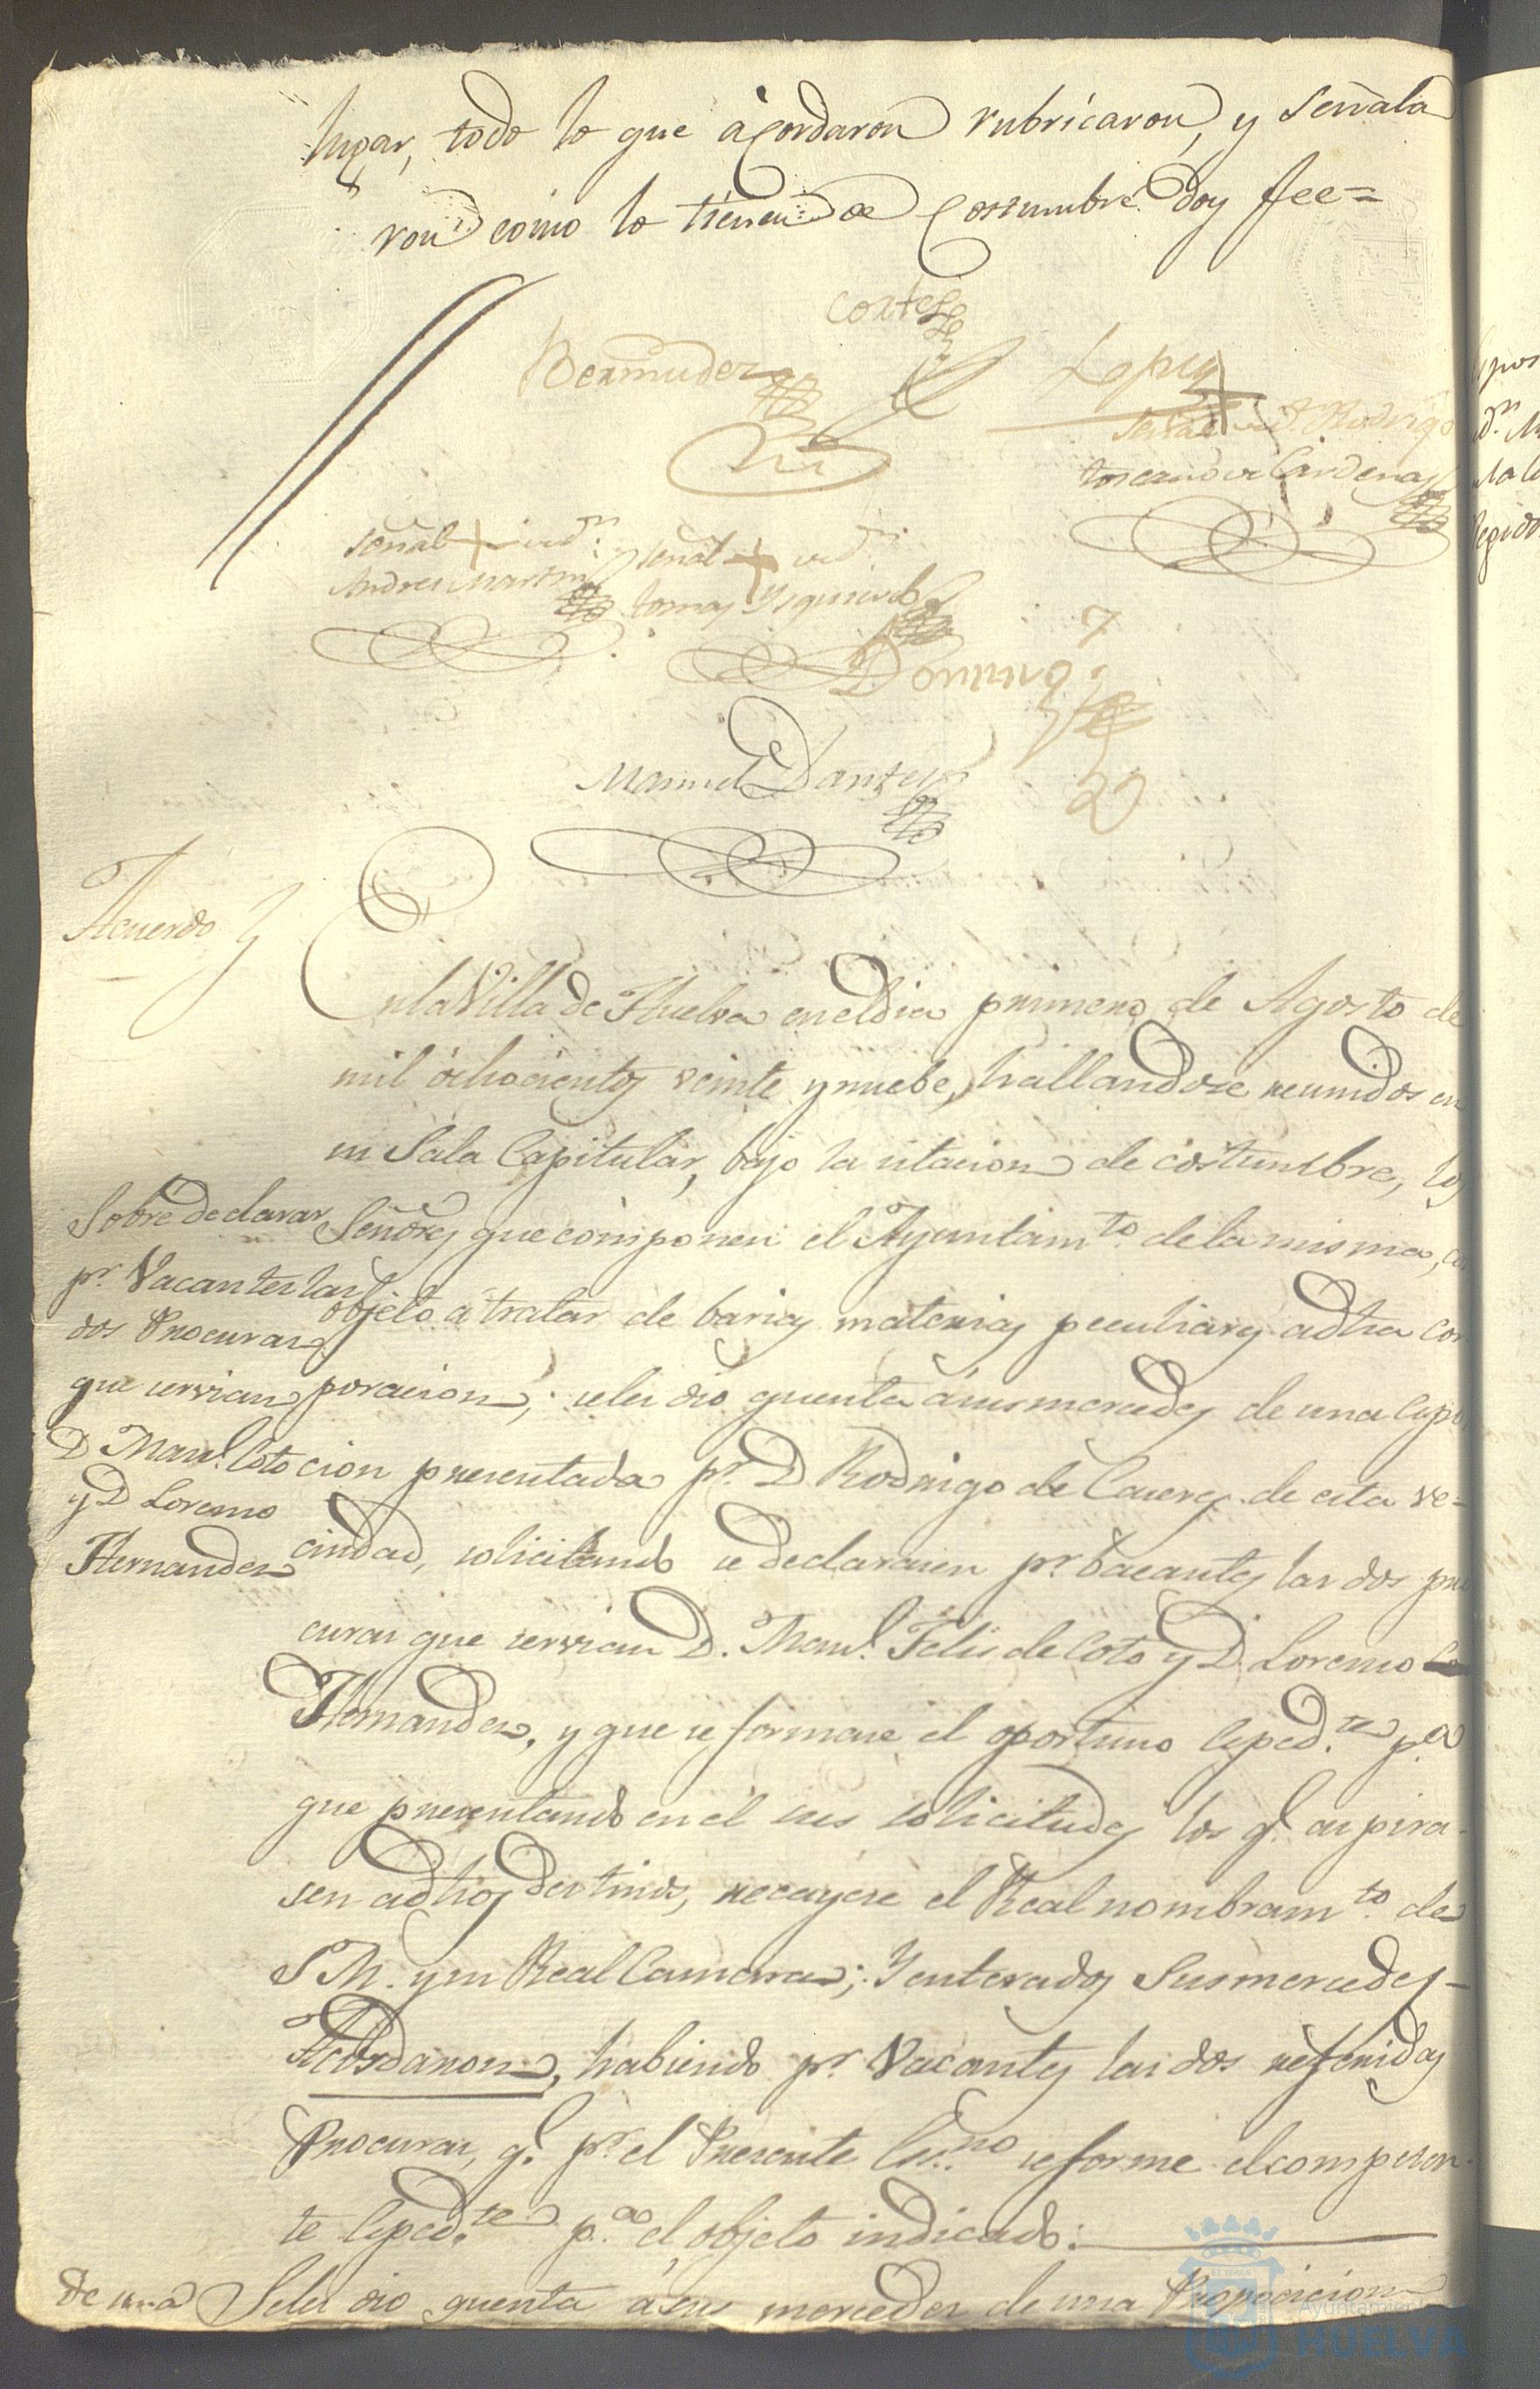 lugar, todo lo que acordaron rubricaron, y señala
ron como lo tienen de costumbre doy fee=
Cortes
Bermudez
Lopez
señal + de Dn. Rodrigo
toscano de Cardenas
señal + de Dn.
Andres Martin
señal + de Dn.
tomas Ysquierdo
Doming
Manuel Dantes
Acuerdo
En la Villa de Huelva en el dia primero de Agosto de
mil ochocientos veinte y nuebe, hallandose reunidos en
su Sala Capitular, bajo la citacion de costumbre, los
Señores que componen el Ayuntamto. de la misma, con
objeto á tratar de barias materias peculiares á dha cor
poracion; seles dió quenta á sus mercedes de una Espo
cion presentada pr. D Rodrigo de Cueres de esta ve=
cindad, solicitando se declarasen pr. bacantes las dos pro
curas que servian D. Manl. Felis de Coto y D. Lorenso
Hernandes, y que se formase el oportuno Esped.te p.a
que presentando en el sus solicitudes los q.e aspira-
sen á dhos destinos, recayese el Real nombramto. de
S M. y su Real Camara; Y enterados Sus mercedes-
Acordaron, habiendo pr. Vacantes las dos referidas
Procuras, q.e pr. el Presente Es.no se forme el competen-
te Esped.te p.a el objeto indicado:
Seles dio quenta á sus mercedes de una Proposicion
Sobre declarar
pr. Vacantes las
dos Procuras
que servian
D Manl. Coto
y D Lorenso
Hernandez
de una
Ayuntamiento
HUELVA